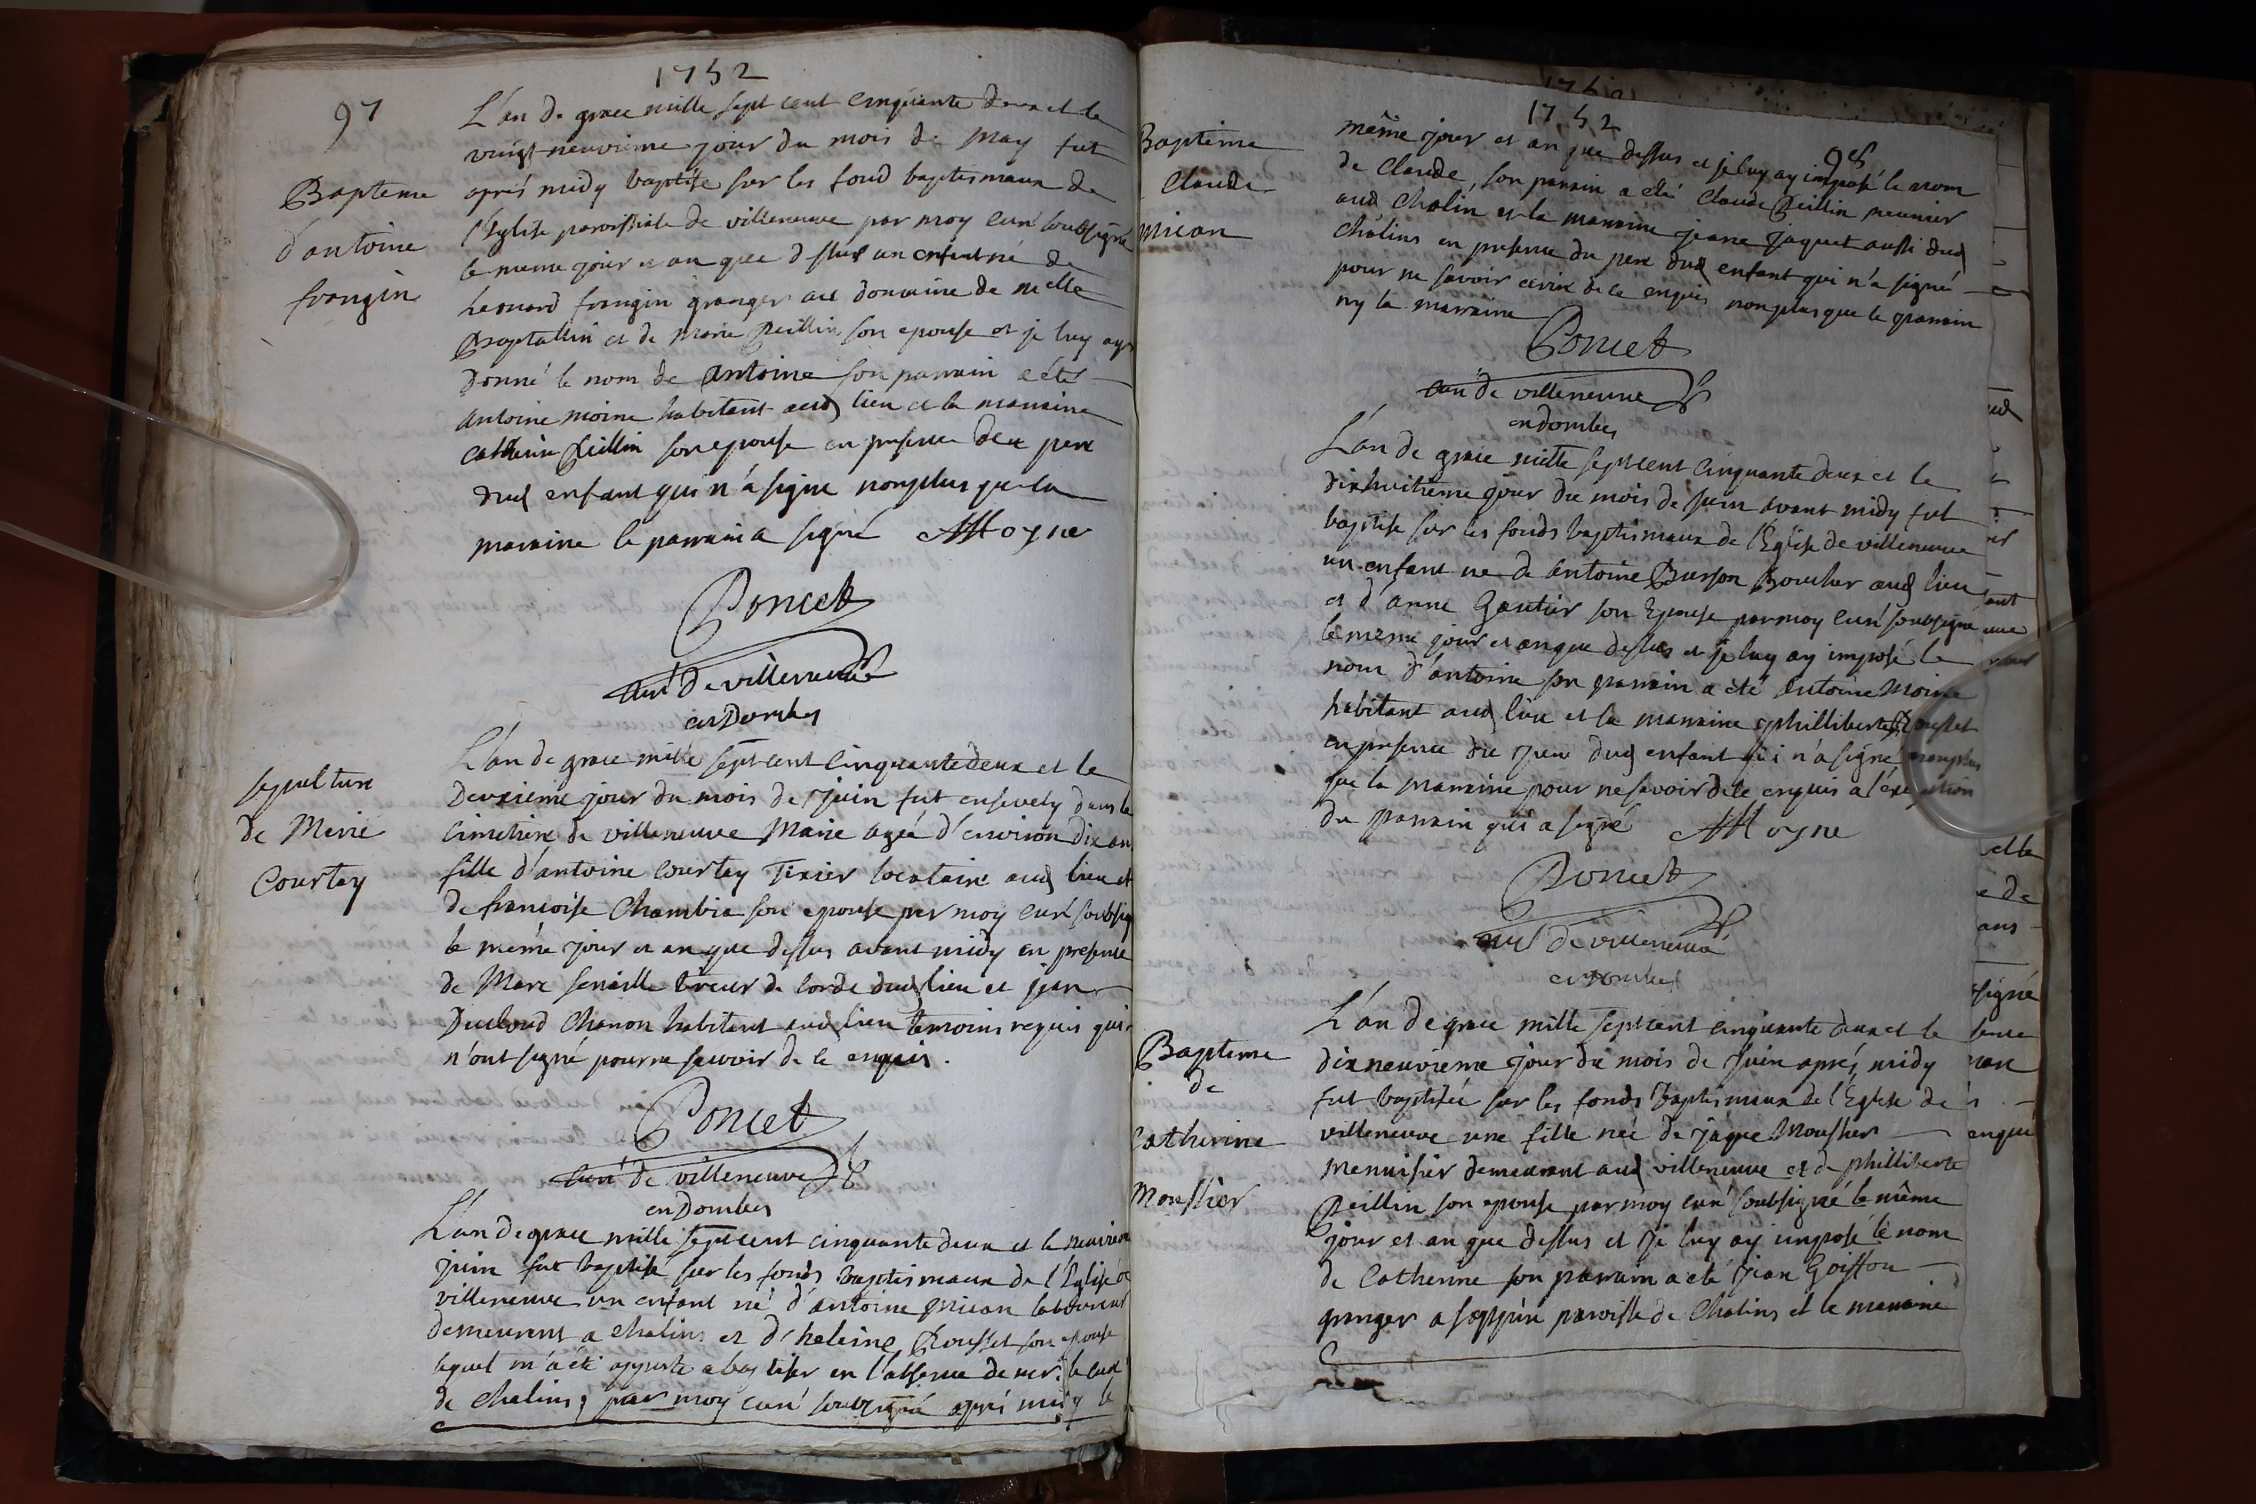 1752
97
L'an de grace mille sept cent cinquante deux et le
vingt neuvieme jour du mois de May fut
Bapteme
aprés midy baptise sur les fond baptismaux de
l'Eglise parroissiale de villeneuve par moy curé soubsigné
d'antoine
le meme jour et an que dessus un enfant né de
frangin
Leonard frangin granger au domaine de melle
et de Marie Peillin son epouse et je luy ay
donné le nom de Antoine son parrain a eté
Antoine moine habitant aud lieu et la marraine
Catherine Peillin son epouse en presence de pere
dud enfant qui n'a signé non plus que la
maraine le parrain a signé AMoyne
Poncet
curé de villeneuve
en Dombes
L'an de grace mille sept cent cinquante deux et le
sepulture
Deuxieme jour du mois de juin fut ensevely dans le
de Marie
Cimetiere de villeneuve Marie agée d'environ dix ans
Courtay
fille d'antoine Courtay Tixier locataire aud lieu et
de francoise Chambia son epouse par moy curé soubsig
le même jour et an que dessus avant midy en presence
de Marc tireur de corde dud lieu et jean
Ducloud Chanon habitent aud lieu temoins requis qui
n'ont signé pour ne savoir de ce enquis.
Poncet
curé de villeneuve
en Dombes
L'an de grace mille sept cent cinquante deux et le neuvieme
juin fut baptisé sur les fonds baptismaux de l'Eglise de
villeneuve un enfant né d'antoine Mican laboureur
demeurent a Chalins et d'heleine Rousset son epouse
lequel m'a été apporté a baptiser en l'absence de mr. le curé
de Chalins, par moy curé soubsigné aprés midy le
1752
98
Bapteme
même jour et an que dessus et je luy ay imposé le nom
Claude
de Claude, son parrain a eté Claude Peillin meunier
Mican
aud Chalin et la marraine jeane jaquet aussi dud
Chalins en presence du pere dud enfant qui n'a signé
pour ne savoir de ce enquis non plus que le parrain
ny la marraine
Poncet
curé de villeneuve
en dombes
L'an de grace mille sept cent cinquante deux et le
dixhuitieme jour du mois de juin avant midy fut
baptisé sur les fonds baptismaux de l'Eglise de villeneuve
un enfant né de Antoine Busson Boucher aud lieu
et d'anne Gautier son Epouse par moy curé soubsigné
le meme jour et an que dessus et je luy ay imposé le
nom d'antoine son parrain a eté Antoine Moine
habitant aud lieu et la marraine phillberte
en presence du pere dud enfant qui n'a signé non plus
que la marraine pour ne savoir de ce enquis a l'exception
du parrain qui a signé AMoyne
Poncet
curé de villeneuve
en Dombes
L'an de grace mille sept cent cinquante deux et le
Bapteme
dixneuvieme jour du mois de juin aprés midy
de
fut baptisée sur les fonds baptismaux de l'Eglise de
Catherine
villeneuve une fille née de jaque Moussier
menuisier demeurant aud villeneuve et de phillberte
Moussier
Peillin son epouse par moy curé soubsigné le même
jour et an que dessus et je luy ay imposé le nom
de Catherine son parrain a eté jean Goiffon
granger a parroisse de Chalins et la maraine